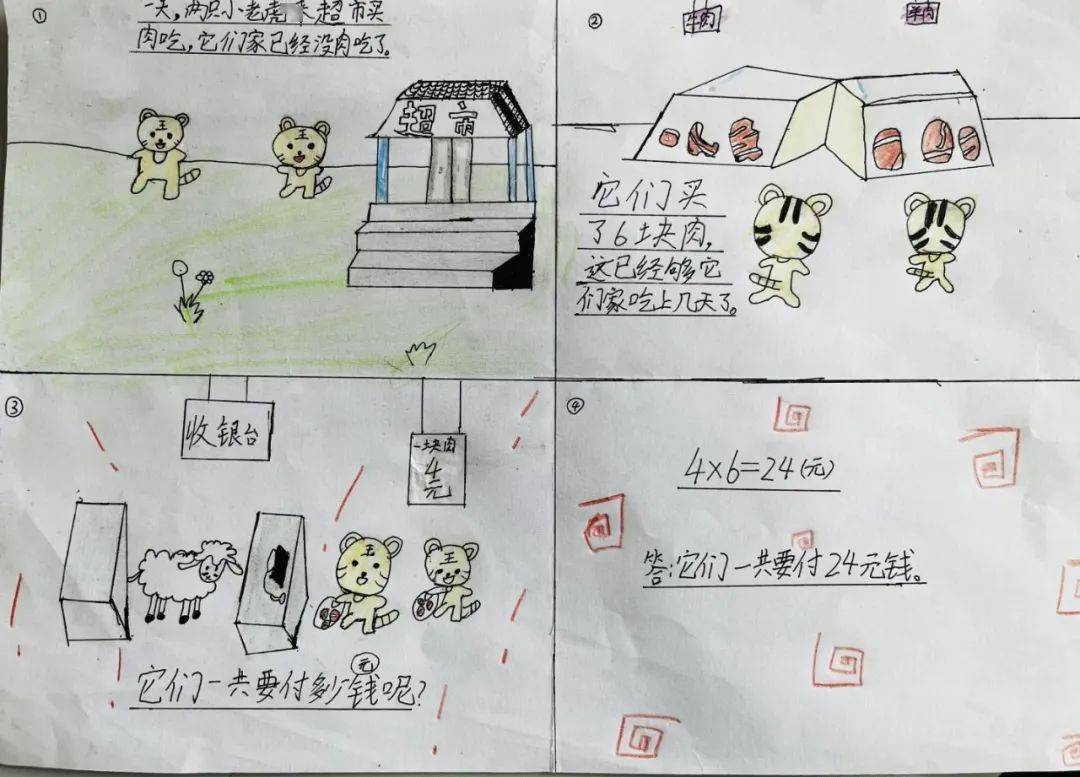 ①
一天,两只小老虎来超市买
肉吃,它们家已经没肉吃了。
超市
②
牛肉
羊肉
它们买
了6块肉,
这已经够它
们家吃上几天了。
③
收银台
一块肉
4元
它们一共要付多少元钱呢?
④
4×6=24(元)
答:它们一共要付24元钱。